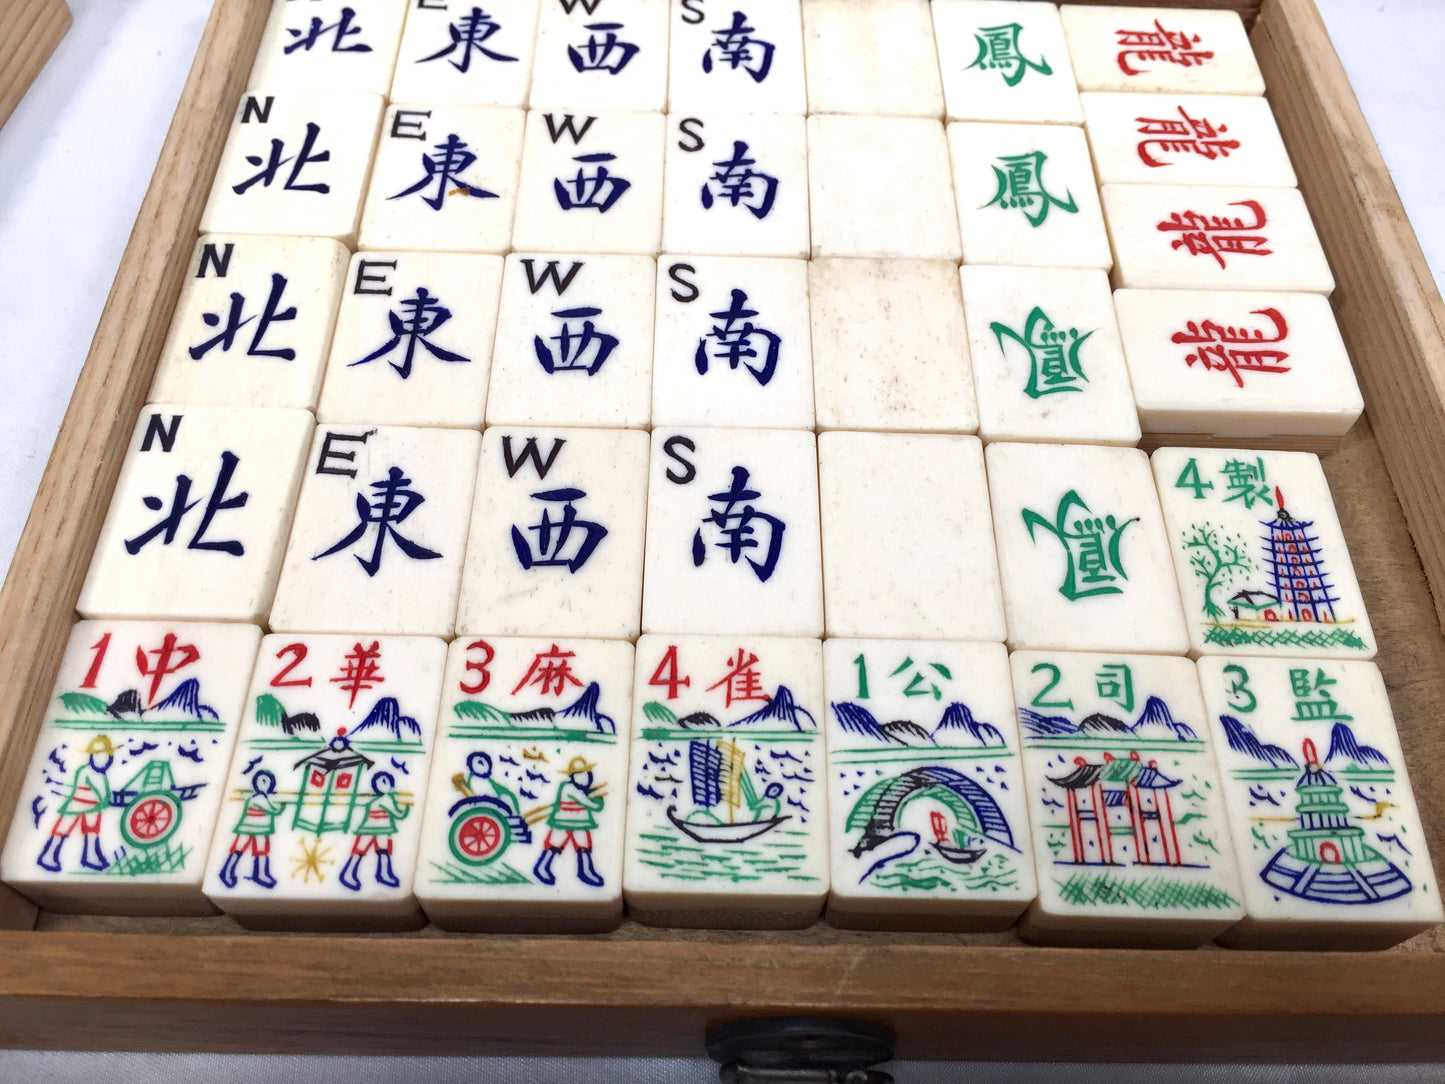 北 E 東 W 西 S 南 鳳 龍
N 北 E 東 W 西 S 南 鳳 龍
N 北 E 東 W 西 S 南 鳳 龍
N 北 E 東 W 西 S 南 鳳 龍
4 製
1 中 2 華 3 麻 4 雀 1 公 2 司 3 監